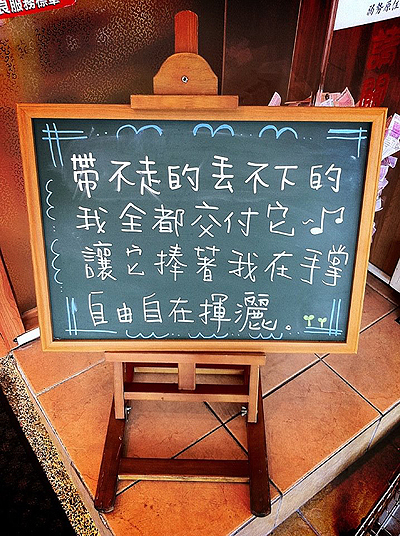 良服務標章
帶不走的丟不下的
我全都交付它~♪♫
讓它捧著我在手掌
自由自在揮灑。